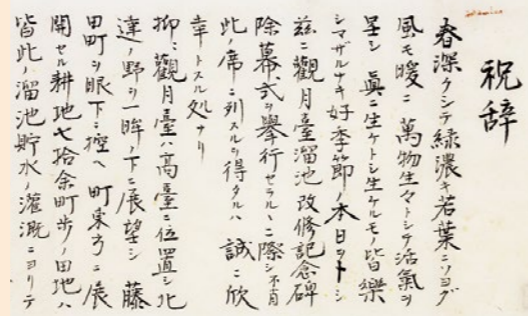 祝辞
春深クシテ緑濃キ若葉ニソヨグ
風モ暖ニ萬物生々トシテ活氣ヲ
呈シ眞ニ生ケトシ生ケルモノ皆樂
シマザルナキ好季節ノ本日ヲトシ
茲ニ觀月臺溜池改修記念碑
除幕式ヲ擧行セラルヽニ際シ不肖
此ノ席ニ列スルヲ得タルハ誠ニ欣
幸トスル処ナリ
抑ニ觀月臺ハ高臺ニ位置シ北
達ノ野ヲ一眸ノ下ニ展望シ藤
田町ヲ眼下ニ控ヘ町東方ニ展
開セル耕地七拾余町歩ノ田地ハ
皆此ノ溜池貯水ノ灌漑ニヨリテ